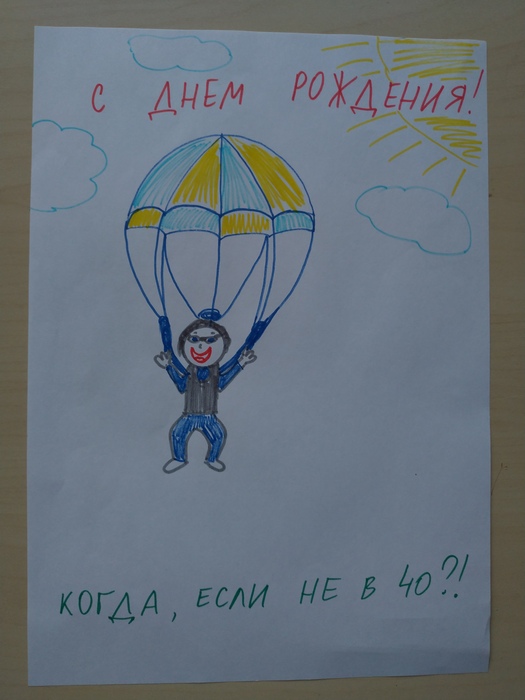 С ДНЕМ РОЖДЕНИЯ!
КОГДА, ЕСЛИ НЕ В 40?!